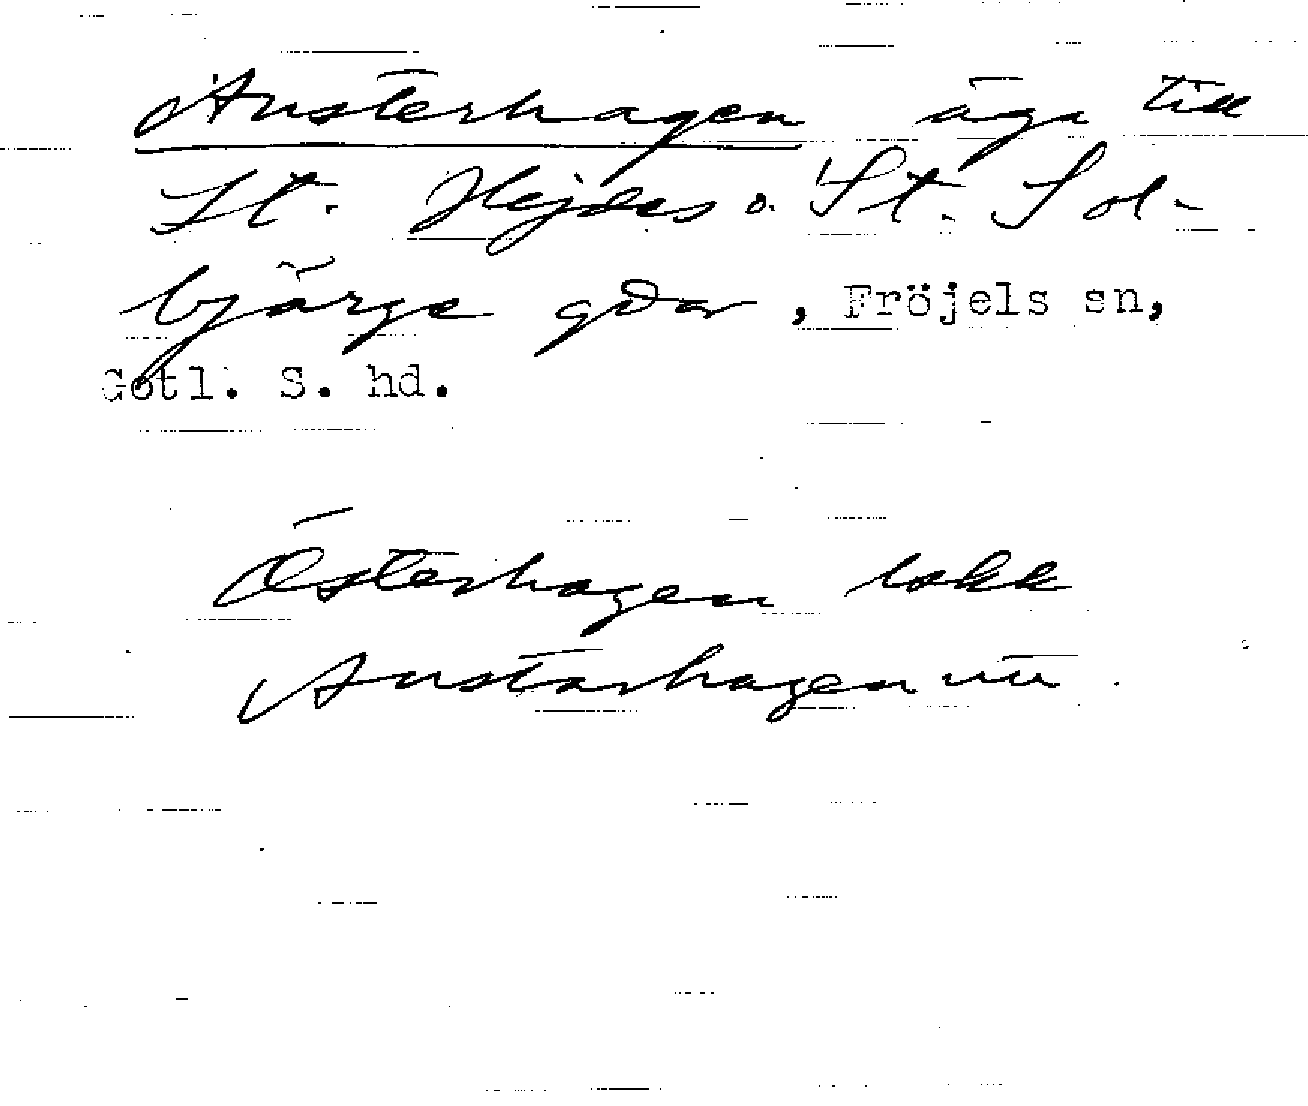 Austerhagen äga till
St. Hejdes o. St. Sol-
bjärge gdar, Fröjels sn,
Gotl. S. hd.
Österhagen
Austarhagen